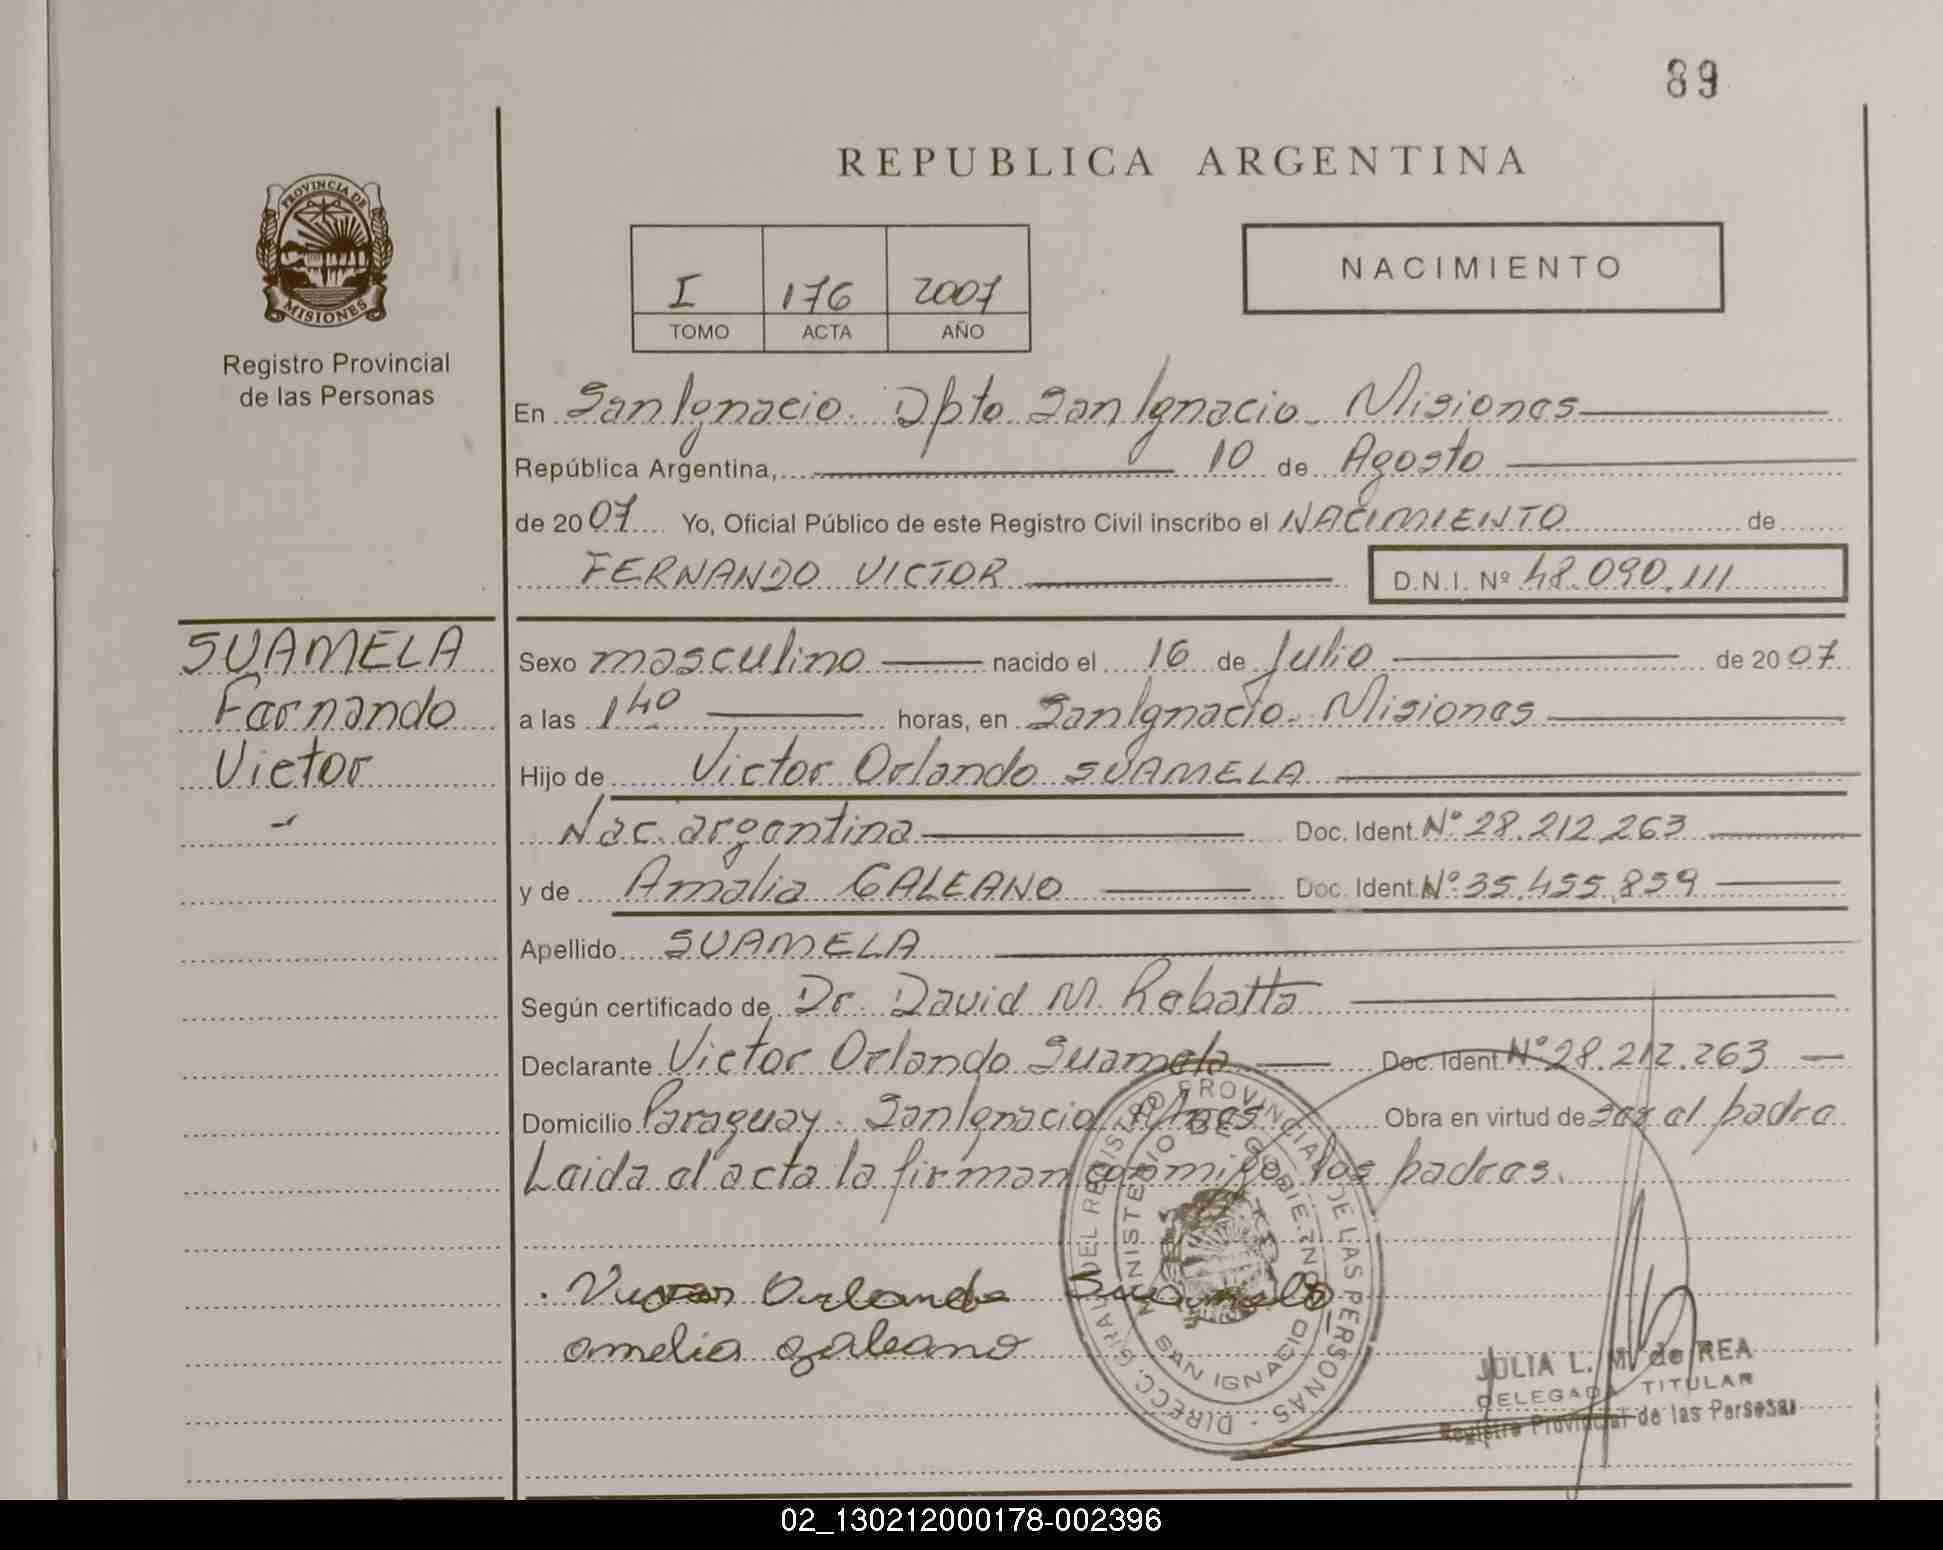 89
REPUBLICA ARGENTINA
PROVINCIA DE
MISIONES
Registro Provincial
de las Personas
I 176 2007
TOMO ACTA AÑO
NACIMIENTO
En San Ignacio. Dpto San Ignacio - Misiones
República Argentina, 10 de Agosto
de 2007 Yo, Oficial Público de este Registro Civil inscribo el NACIMIENTO de
FERNANDO VICTOR D.N.I. Nº 48.090.111
SUAMELA
Fernando
Victor
Sexo masculino nacido el 16 de Julio de 2007
a las 1 40 horas, en San Ignacio - Misiones
Hijo de Victor Orlando SUAMELA
Nac. argentina Doc. Ident. Nº 28.212.263
y de Amalia GALEANO Doc. Ident. Nº 35.455.859
Apellido SUAMELA
Según certificado de Dr. David M. Rebatta
Declarante Victor Orlando Suamela Doc. Ident. Nº 28.212.263
Domicilio Paraguay - San Ignacio Mnes Obra en virtud de ser el padre
Leida el acta la firman conmigo los padres.
Orlando Suamela
amelia galeano
DIRECC. GRAL. DEL REGISTRO PROVINCIAL DE LAS PERSONAS
MINISTERIO DE GOBIERNO
SAN IGNACIO
JULIA L. M. de REA
DELEGADA TITULAR
Registro Provincial de las Personas
02_130212000178-002396